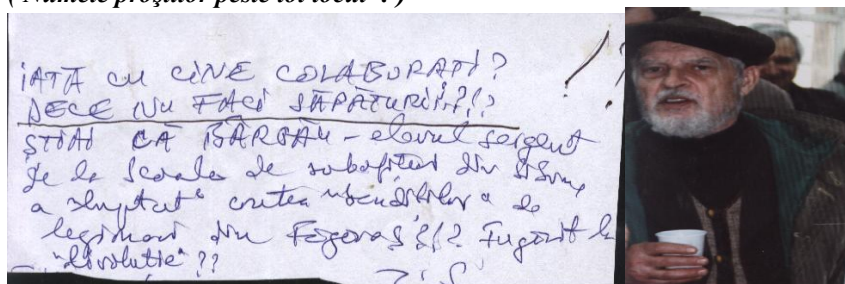 (Numele proștilor peste tot locul"! )
IATĂ CU CINE COLABORAȚI?
DECE NU FACI SĂPĂTURI!?!?
ȘTIAI CĂ BĂRBĂU – elevul sergent
de la școala de subofițeri din
a luptat" contra "bandiților" de
legionari din Făgăraș?!? Fugărit la
"Revoluție"??